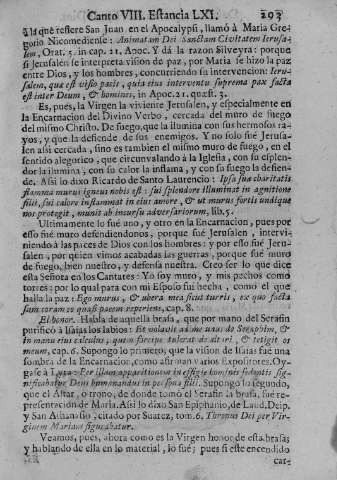 Canto VIII. Estancia LXI. 293
à la que refiere San Juan en el Apocalypsi, llamó à Maria Gre-
gorio Nicomediense: Animatam Dei Sanctam Civitatem Ierusa-
lem, Orat. 1. in cap. 21. Apoc. Y dá la razon Silveyra: porque
si Jerusalen se interpreta vision de paz, por Maria se hizo la paz
entre Dios, y los hombres, concurriendo su intervencion: Ieru-
salem, quæ est visio pacis, quia eius interventu suprema pax facta
est inter Deum, & homines, in Apoc. 21. quæst. 2.
Es, pues, la Virgen la viviente Jerusalen, y especialmente en
la Encarnacion del Divino Verbo, cercada del muro de fuego
del mismo Christo. De fuego, que la ilumina con sus hermosos ra-
yos, y que la defiende de sus enemigos. Y no solo fue Jerusa-
len assi cercada, sino es tambien el mismo muro de fuego, en el
sentido alegorico, que circunvalando à la Iglesia, con su esplen-
dor la ilumina, con su calor la inflama, y con su fuego la defien-
de. Assi lo dixo Ricardo de Santo Laurencio: Ipsa sua charitatis
flamma murus igneus nobis est: sui splendore illuminat in agnitione
filii, sui calore inflammat in eius amore, & ut murus fortis undique
nos protegit, munit ab incursu adversariorum, lib. 5.
Ultimamente lo fue uno, y otro en la Encarnacion, pues por
esso fue muro defendiendonos, porque fue Jerusalen, intervi-
niendo à las paces de Dios con los hombres: y por esso fue Jerusa-
len, por quien vimos acabadas las guerras, porque fue muro
de fuego, bien nuestro, y defensa nuestra. Creo ser lo que dice
esta Señora en los Cantares: Yo soy muro, y mis pechos como
torres: por lo qual para con mi Esposo fui hecha, como el que
halla la paz: Ego murus, & ubera mea sicut turris, ex quo facta
sum coram eo quasi pacem reperiens, cap. 8.
El honor. Habla de aquella brasa, que por mano del Serafin
purificò à Isaias los labios: Et volavit ad me unus de Seraphim, &
in manu eius calculus, quem forcipe tulerat de altari, & tetigit os
meum, cap. 6. Supongo lo primero, que la vision de Isaias fue una
sombra de la Encarnacion, como afirman varios Expositores. Oy-
gase à Per illam apparitionem in effigie hominis sedentis sig-
nificabatur Deus humanandus in persona filii. Supongo lo segundo,
que el Altar, ò trono, de donde tomó el Serafin la brasa, fue re-
presentacion de Maria. Assi lo dixo San Epiphanio, de Laud. Deip.
y San Athanasio, citado por Suarez, tom. 6. Thronus Dei per Vir-
ginem Mariam figurabatur.
Veamos, pues, ahora como es la Virgen honor de esta brasas
y hablando de ella en lo material, lo fue; pues si este encendido
car-